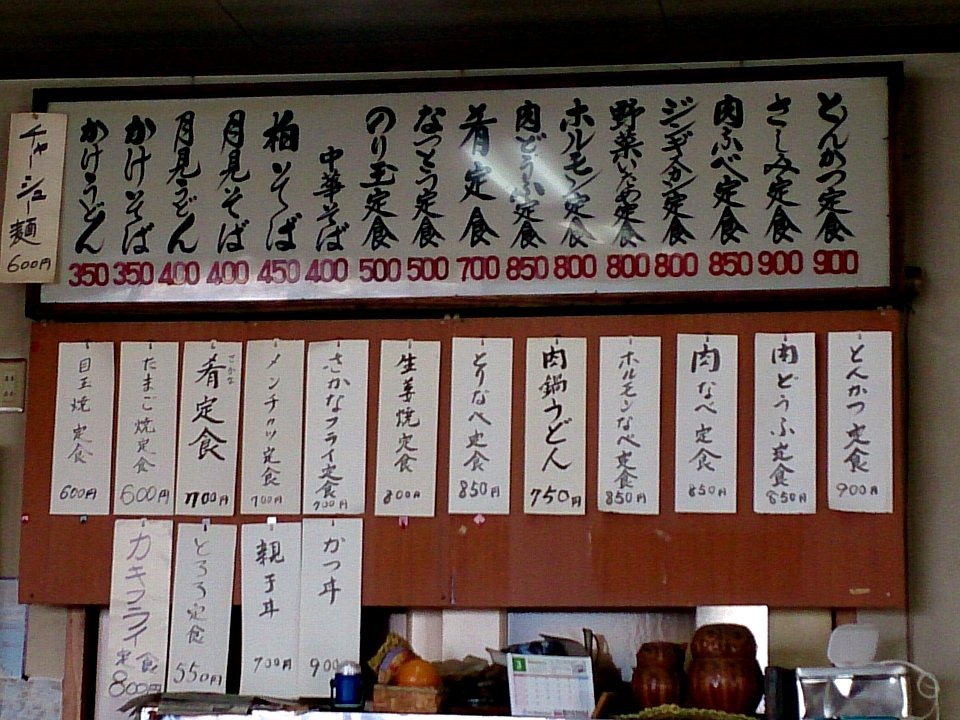 とんかつ定食 900
さしみ定食 900
肉ふべ定食 850
ジンギスカン定食 800
野菜いため定食 800
ホルモン定食 800
肉どうふ定食 850
肴定食 700
なっとう定食 500
のり玉定食 500
中華そば 400
柏そば 450
月見そば 400
月見うどん 400
かけそば 350
かけうどん 350
チャーシュー麺 600円
とんかつ定食 900円
肉どうふ定食 850円
肉なべ定食 850円
ホルモンなべ定食 850円
肉鍋うどん 750円
とりなべ定食 850円
生姜焼定食 800円
さかなフライ定食 700円
メンチカツ定食 700円
肴定食 700円
さかな
たまご焼定食 600円
目玉焼定食 600円
かつ丼 900
親子丼 700円
とろろ定食 550円
カキフライ定食 800円